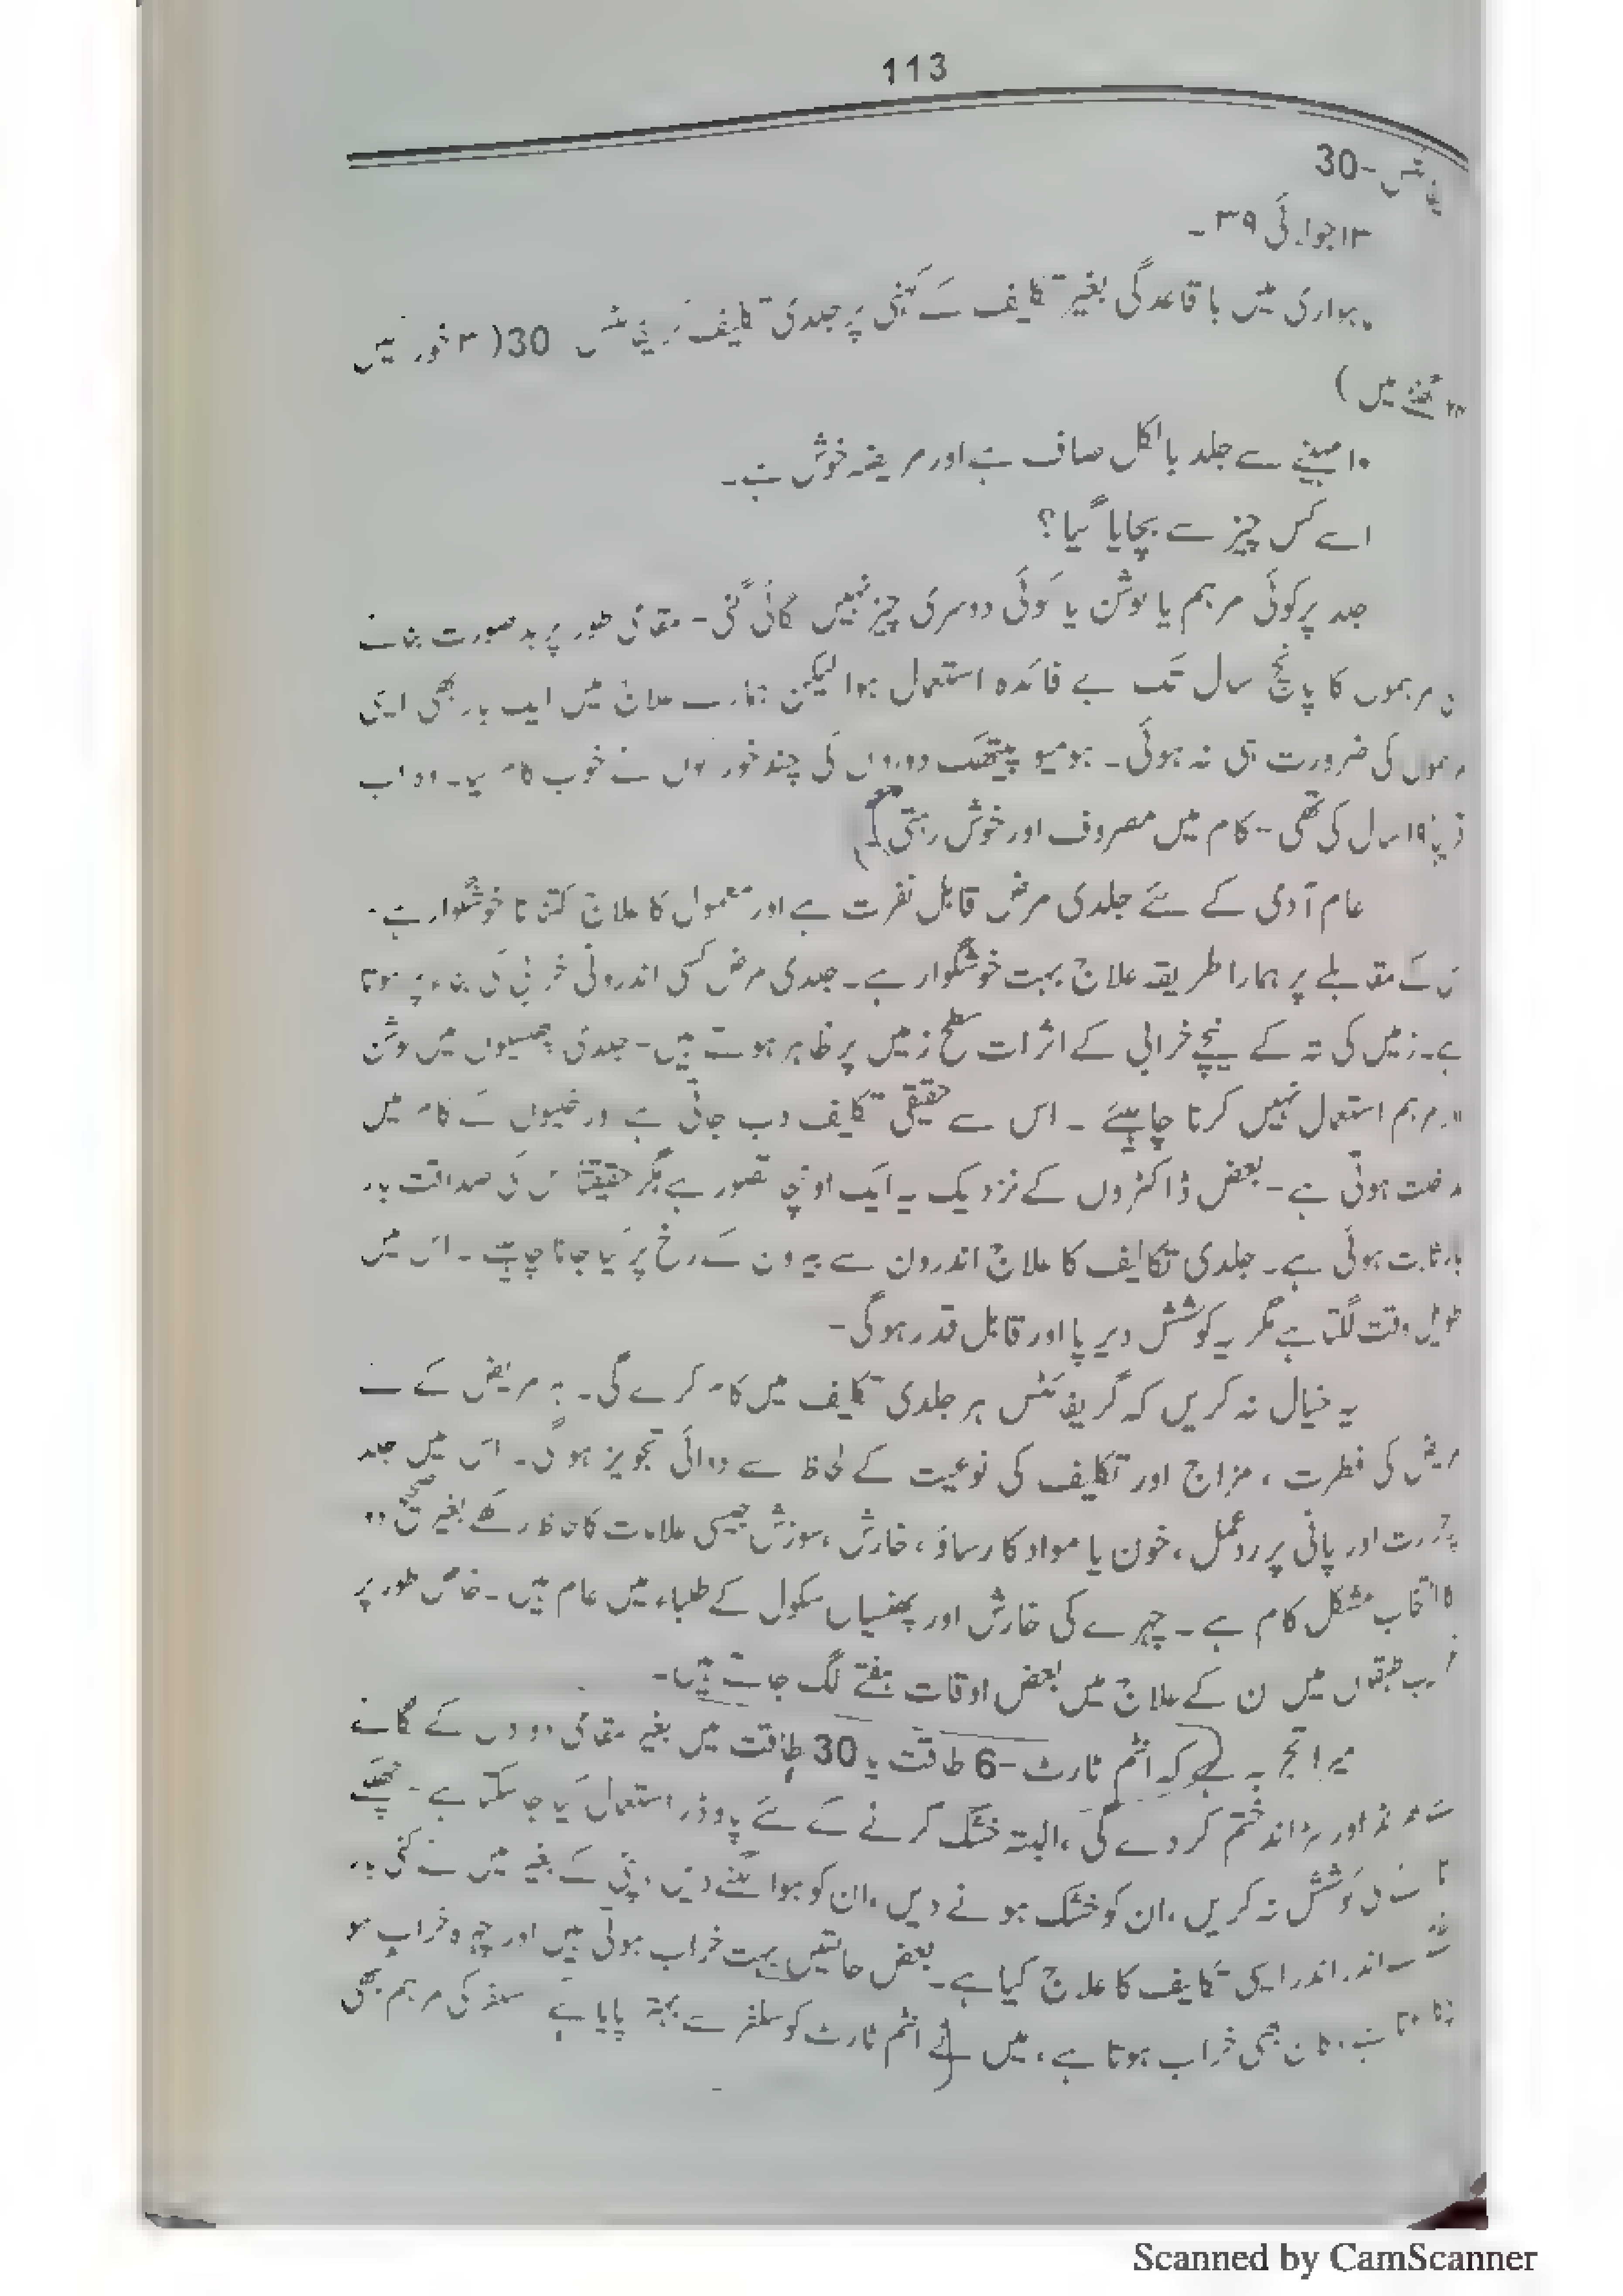 113
گریفائٹس-30
۱۳ جولائی ۳۹ ۔
ماہواری میں باقاعدگی بغیر تکلیف کے کہنی پر جلدی تکلیف گریفائٹس 30 (۳ خوراکیں
گھنٹے میں)
۱۰ مہینے سے جلد بالکل صاف ہے اور مریضہ خوش ہے۔
اسے کس چیز سے بچایا گیا؟
جلد پر کوئی مرہم یا لوشن یا کوئی دوسری چیز نہیں لگائی گئی- مقامی طور پر بدصورت بنانے
مرہموں کا پانچ سال تک بے فائدہ استعمال ہوا لیکن ہمارے علاج میں ایک بار بھی ایسی
مرہموں کی ضرورت ہی نہ ہوئی۔ ہومیو پیتھک دواؤں کی چند خوراکوں نے خوب کام کیا۔ وہ اب
تقریباً ۱۹ سال کی تھی- کام میں مصروف اور خوش رہتی
عام آدمی کے لئے جلدی مرض قابل نفرت ہے اور معمول کا علاج کتنا ناخوشگوار ہے۔
اس کے مقابلے پر ہمارا طریقہ علاج بہت خوشگوار ہے۔ جلدی مرض کسی اندرونی خرابی کی بناء پر ہوتا
ہے۔ زمین کی تہ کے نیچے خرابی کے اثرات سطح زمین پر ظاہر ہوتے ہیں- جلدی پھنسیوں میں لوشن
اور مرہم استعمال نہیں کرنا چاہیئے ۔ اس سے حقیقی تکلیف دب جاتی ہے اور خلیوں کے کام میں
مداخلت ہوتی ہے- بعض ڈاکٹروں کے نزدیک یہ ایک اونچا تصور ہے مگر حقیقتاً اس کی صداقت بار
بار ثابت ہوئی ہے۔ جلدی تکالیف کا علاج اندرون سے بیرون کے رخ پر کیا جانا چاہیئے ۔ اس میں
طویل وقت لگتا ہے مگر یہ کوشش دیر پا اور قابل قدر ہوگی-
یہ خیال نہ کریں کہ گریفائٹس ہر جلدی تکلیف میں کام کرے گی۔ ہر مریض کے لئے
مریض کی فطرت ، مزاج اور تکلیف کی نوعیت کے لحاظ سے دوائی تجویز ہوگی۔ اس میں جلد
پر حرارت اور پانی پر ردعمل ، خون یا مواد کا رساؤ ، خارش ، سوزش جیسی علامات کا لحاظ رکھے بغیر صحیح دوا
کا انتخاب مشکل کام ہے ۔ چہرے کی خارش اور پھنسیاں سکول کے طلباء میں عام ہیں۔ خاص طور پر
غریب طبقوں میں ان کے علاج میں بعض اوقات ہفتے لگ جاتے ہیں-
میرا تجربہ ہے کہ انٹم ٹارٹ-6 طاقت یا 30 طاقت میں بغیر مقامی دواؤں کے لگانے
اور سڑاند ختم کر دے گی ، البتہ خشک کرنے کے لئے پاؤڈر استعمال کیا جا سکتا ہے- چھلکے
کی کوشش نہ کریں ، ان کو خشک ہونے دیں ، ان کو ہوا لگنے دیں ، پٹی کے بغیر میں نے کئی بار
کے اندر اندر ایسی تکالیف کا علاج کیا ہے۔ بعض حالتیں بہت خراب ہوتی ہیں اور چہرہ خراب ہو
ہے ، کان بھی خراب ہوتا ہے ، میں نے انٹم ٹارٹ کو سلفر سے بہتر پایا ہے سلفر کی مرہم بھی
Scanned by CamScanner